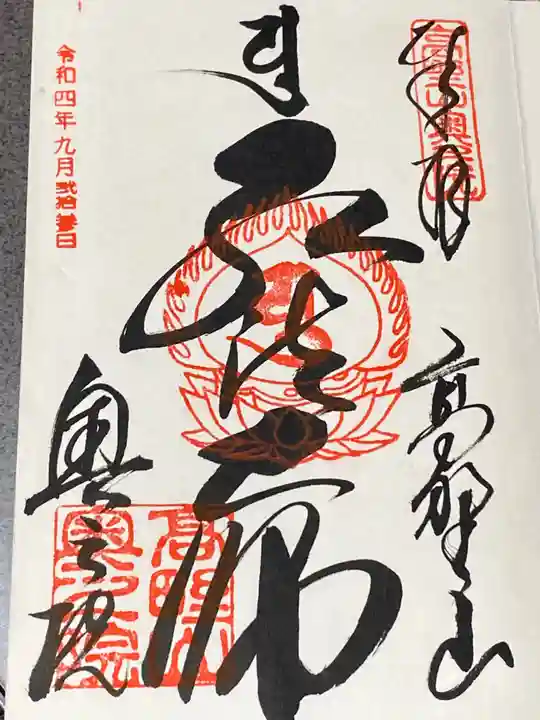 奉拝
高野山奥之院
高野山
弘法大師
高野山
奥之院
奥之院
令和四年九月弐拾日